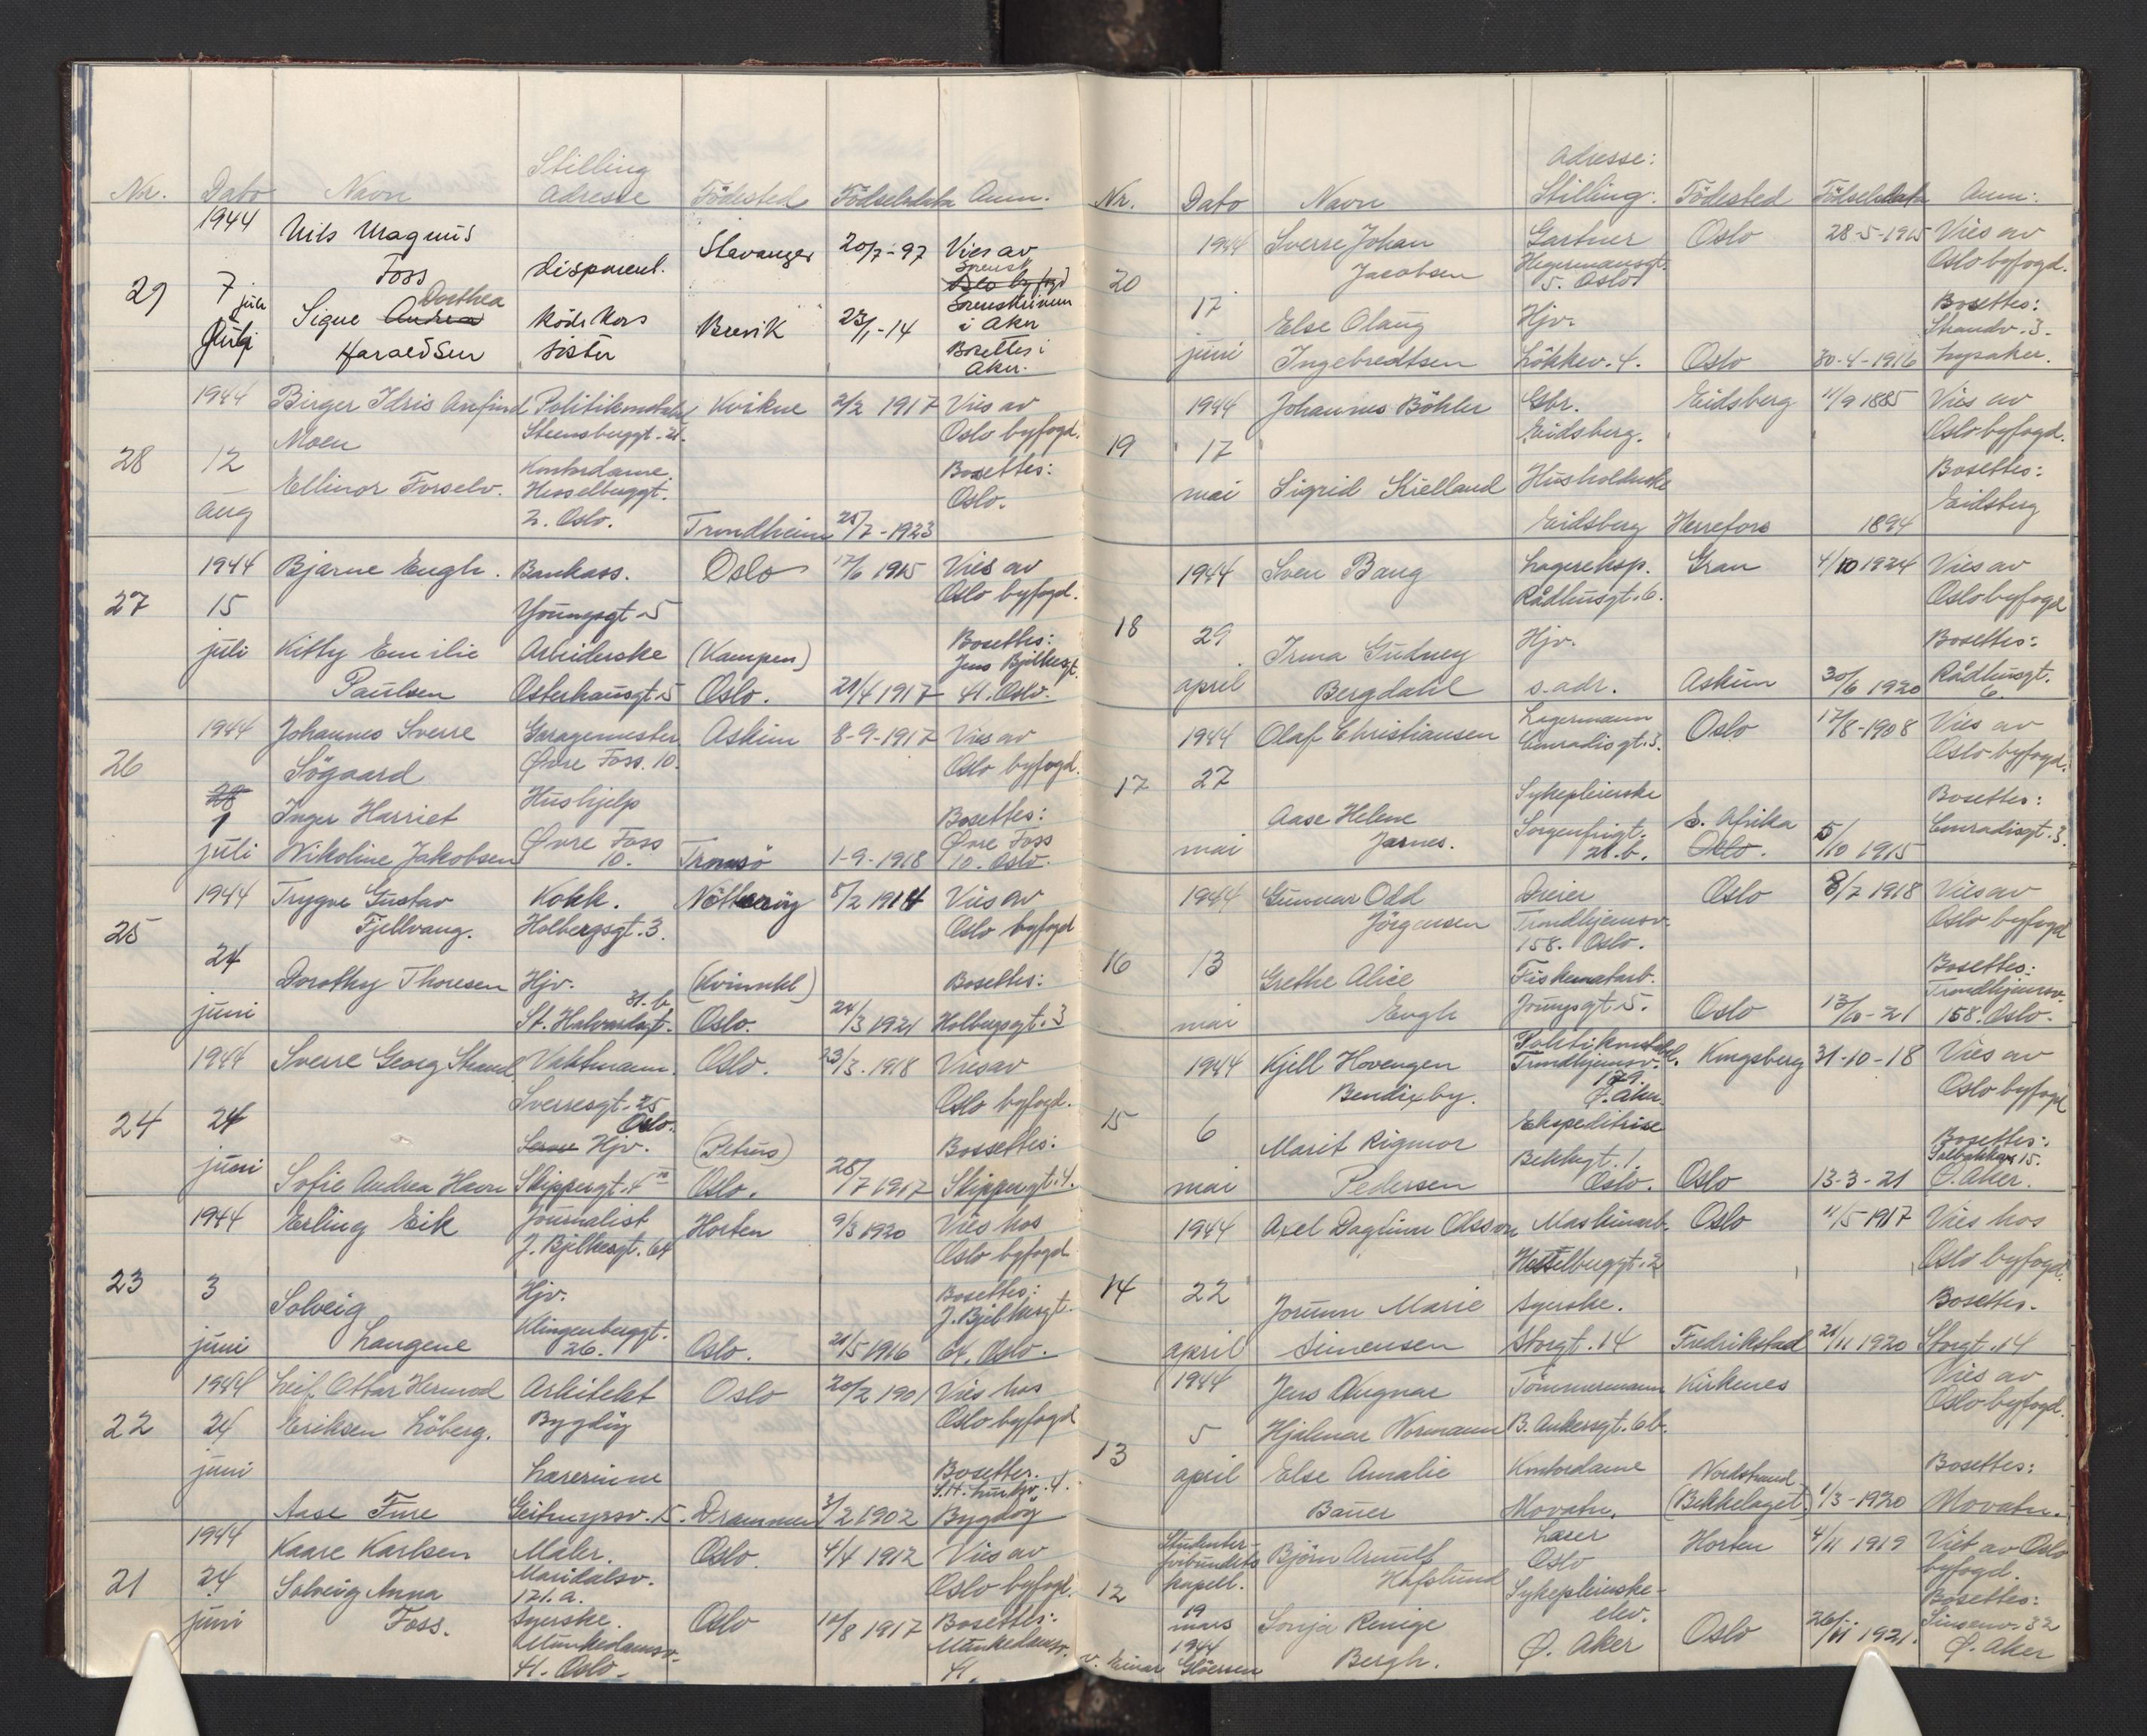 Nr. Dato Navn Stilling Adresse Födested Födselsdato Anm.
1944 Nils Magnus Foss disponent. Stavanger 20/7-97 Vies av
29 7 juli
Signe Andrea Dorthea Haraldsen Röde Kors søster Brevik 23/1-14 Sorenskriveren i Aker
Bosettes i Aker.
1944 Birger Idris Anfind Politikonstabel Kvikne 2/2 1917 Vies av
Moen Steensbuggt. 21. Oslo byfogd.
28 12 Kontordame Bosettes:
Ellinor Forselv. Hesselbuggt. Oslo.
aug 2. Oslo. Trondheim 25/7-1923
1944 Bjarne Engh. Bankass. Oslo 17/6 1915 Vies av
Oslo byfogd.
27 15 Youngsgt. 5
juli Kitty Emilie Arbeiderske (Kampen) Bosettes: Jens Bjelkesgt.
Paulsen Osterhausgt. 5 Oslo. 21/4 1917 41. Oslo.
1944 Johannes Sverre Garagemester Askim 8-9-1917 Vies av
26 Sögaard Øvre Foss. 10. Oslo byfogd.
28
1 Inger Harriet Hushjelp Bosettes:
juli Nikoline Jakobsen Øvre Foss 10. Tromsö 1-9-1918 Øvre Foss 10. Oslo.
1944 Trygve Gustav Kokk. Nötteröy 5/2 1914 Vies av
25 Fjellvang. Holbergsgt. 3. Oslo byfogd
24 Dorothy Thoresen Hjv. Bosettes:
juni St. Halvardsgt. 31.b. Oslo. 24/3 1921 Holbergsgt. 3
1944 Sverre Georg Strand Vaktmann. Oslo. 23/3. 1918 Vies av
Sverresgt. 25 Oslo. Oslo byfogd.
24 24 Hjv. (Petrus) Bossettes:
juni Sofie Andrea Havn Skippergt. 4 Oslo. 28/7 1917 Skippergt. 4.
1944 Erling Eik Journalist Horten 9/3 1920 Vies hos
J. Bjelkesgt. 64 Oslo byfogd
23 3 Solveig Hjv. Bosettes: J. Bjelkesgt.
juni Langene Klingenberggt. 26. Oslo. 21/5 1916 64. Oslo.
1944 Leif Ottar Hermod Arkitekt Oslo 20/2 1901 Vies hos
22 24 Eriksen Löberg. Bygdöy Oslo byfogd
juni Lærerinne Bosettes.
Aase Fure Geitmyrsv. 15. Drammen 3/2 1902 Bygdöy
1944 Kaare Karlsen Maler. Oslo. 4/4 1912 Vies av
21 24 Solveig Anna Maridalsv. 121.a. Oslo byfogd.
juni Foss. Syerske. Oslo 10/8 1917 Bosettes:
Munkedamsv. 41. Oslo. Munkedamsv. 41.
Nr. Dato Navn Adresse: Stilling: Födested Födselsdato Anm:
1944 Sverre Johan Gartner Oslo 28-5-1915 Vies av
20 Jacobsen Hegermansgt. 5. Oslo Oslo byfogd.
17 Else Olaug Hjv. Bosettes: Strandv. 3.
juni Ingebredtsen Lökkev. 4. Oslo 30-4-1916 Lysaker.
1944 Johannes Böhler Gbr. Eidsberg 11/9 1885 Vies av
19 17 Eidsberg. Oslo byfogd.
mai Sigrid Kielland Husholderske Bosettes:
Eidsberg Herrefoss 1894 Eidsberg
1944 Sven Bang Lagereksp. Gran 4/10 1924 Vies av
Rådhusgt. 6. Oslo byfogd
18 29 Irma Gudney Hjv. Bosettes:
april Bergdahl s. adr. Askim 30/6 1920 Rådhusgt. 6.
1944 Olaf Christiansen Lagermann Oslo 17/8-1908 Vies av
Conradisgt. 3. Oslo byfogd.
17 27 Aase Helene Sykepleierske S. Afrika Bosettes:
mai Jarnes. Sorgenfrigt. 21.b. Oslo. 5/10 1915 Conradisgt. 3.
1944 Gunnar Odd Dreier Oslo 8/7 1918 Vies av
Jörgensen Trondhjemsv. 158. Oslo. Oslo byfogd
16 13 Grethe Alice Fiskematarb. Bosettes: Trondhjemsv.
mai Engh Youngsgt. 5. Oslo 13/10-21 158. Oslo.
1944 Kjell Hovengen Politikonstabel. Kongsberg 31-10-18 Vies av
Bendixby. Trondhjemsv. 179. Ø. Aker. Oslo byfogd
15 6 Marit Rigmor Ekspeditrise Bosettes:
mai Pedersen Bekkegt. 1. Oslo. Oslo 13-3-21 Ø. Aker.
1944 Axel Dagfinn Olsson Maskinarb. Oslo 11/5 1917 Vies hos
Hesselbuggt. 2 Oslo byfogd.
14 22 Jorunn Marie Syerske. Bosettes.
april Simensen Storgt. 14 Fredrikstad 21/11 1920 Storgt. 14
1944 Jens Ragnar Tömmermann Kirkenes Vies av
5 Hjalmar Normann B. Ankersgt. 6b. Oslo byfogd.
13 april Else Amalie Kontordame Nordstrand Bosettes:
Bauer Movatn. (Bekkelaget) 1/3-1920 Movatn.
Studenter-forbundets kapell. Björn Arnulf Lærer Oslo Horten 4/11 1919 Viet av Oslo byfogd.
12 Hafslund Sykepleierske-elev. Bosettes:
19 mars 1944 Sonja Renige Bergh. Ø. Aker Oslo 26/11 1921. Sinsenv. 32 Ø. Aker
v. Einar